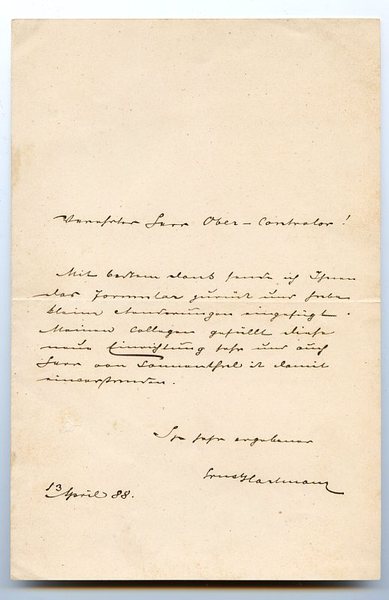 Verehrter Herr Ober-Controlor!
Mit bestem Dank sende ich Ihnen
das Formular zurück und habe
kleine Änderungen eingefügt.
Meinen Collegen gefällt diese
neue Einrichtung sehr und auch
Herr von Sonnenthal ist damit
einverstanden.
Ihr sehr ergebener
Ernst Hartmann
13 April 88.